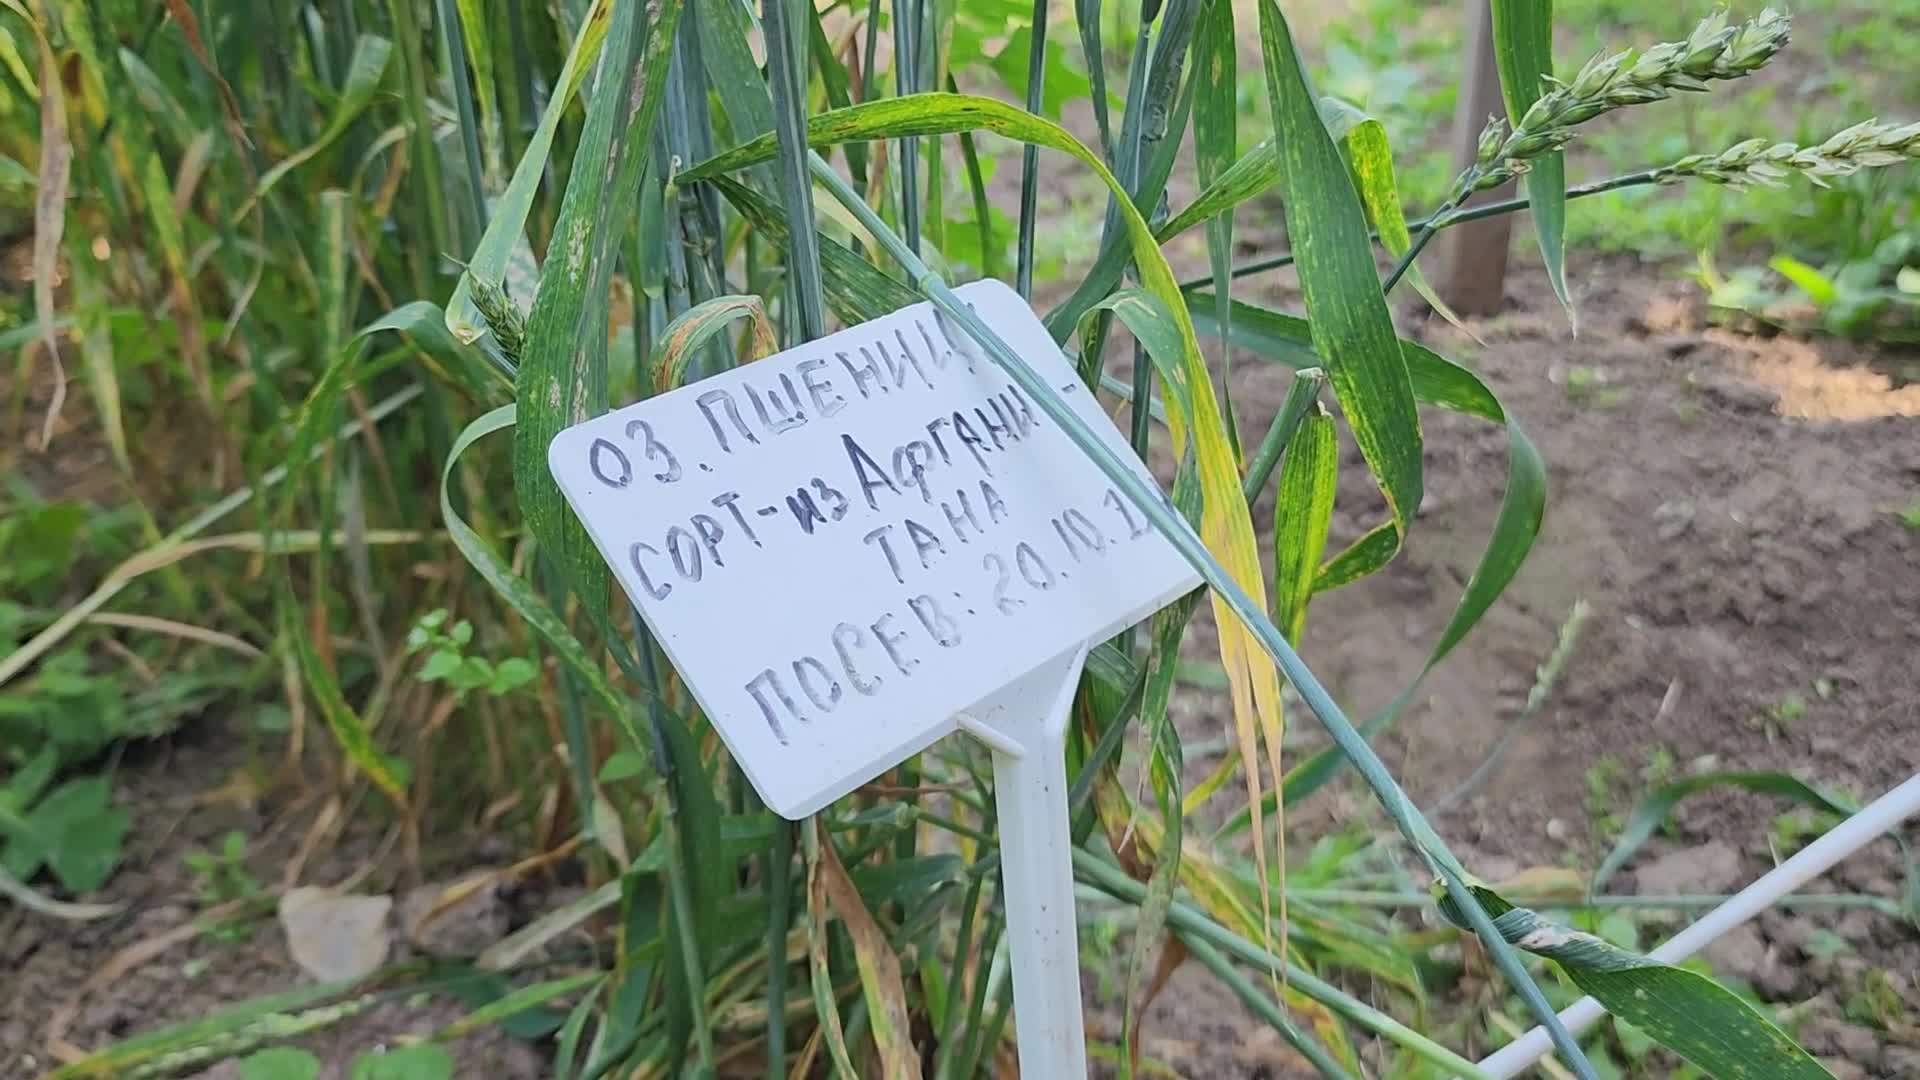 ОЗ. ПШЕНИЦ
СОРТ-ИЗ АФГАНИ-
ТАНА
ПОСЕВ: 20.10.